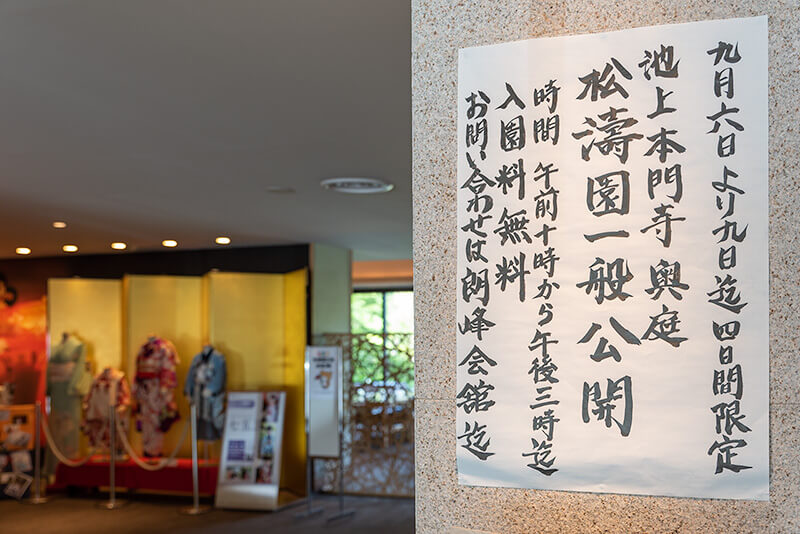 九月六日より九日迄四日間限定
池上本門寺奥庭
松濤園一般公開
時間 午前十時から午後三時迄
入園料無料
お問い合わせは朗峰会館迄